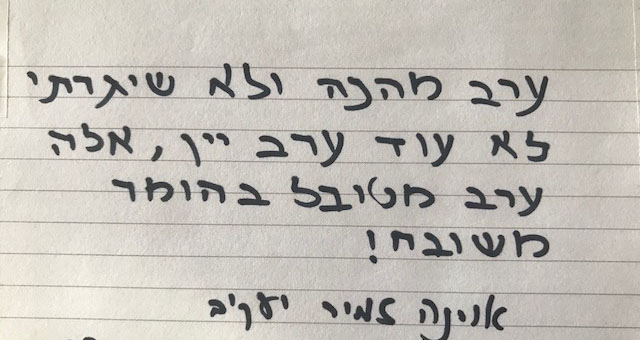 ערב מהנה ולא שיגרתי
לא עוד ערב יין, אלה
ערב מטובל בהומר
משובח!
זמיר יעקב